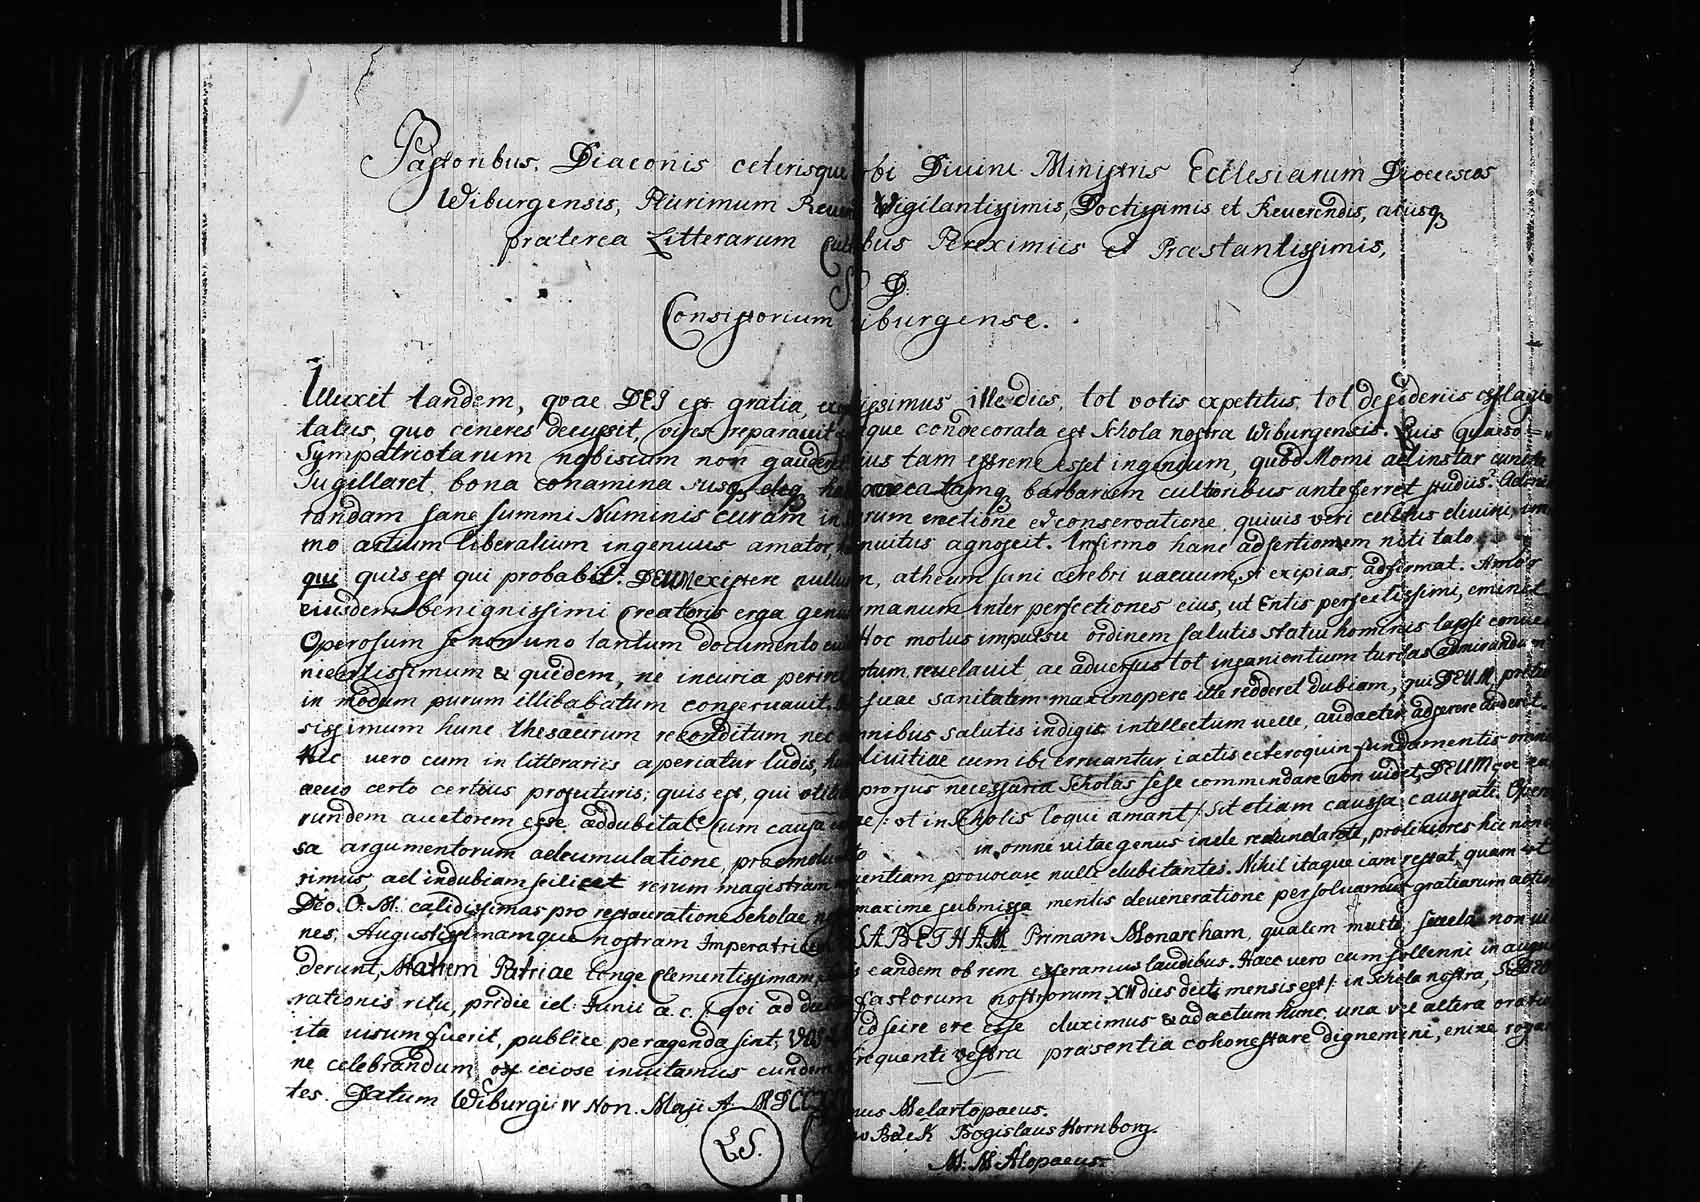 Pastoribus, Diaconis ceterisque bi Divini Ministris Ecclesiarum Dioeceseos
Wiburgensis, Plurimum Reueren Vigilantissimis, Doctissimis et Reuerendis, aliisq
praeterea Litterarum Cul bus Pereximiis et Praestantissimis,
S. D.
Consistorium iburgense.
Illuxit tandem, qvae DEI est gratia, ex issimus ille dies, tot votis expetitus, tot desideriis efflagi
tatus, quo cineres decussit, vires reparauit que condecorata est Schola nostra Wiburgensis. Quis quaeso
Sympatriotarum nobiscum non gauderet ius tam effrene esset ingenium, quod Momi ad instar cuncta
Sugillaret, bona conamina susq deq ha caecatamq barbariem cultioribus anteferret studiis? Admi
randam sane summi Numinis curam in arum erectione et conservatione, quiuis veri cultus diuini, im
mo artium liberalium ingenuus amator nuitus agnoscit. Infirmo hanc adsertionem niti talo
qui quis est qui probabit? DEUM existere nullum, atheum sani cerebri vacuum, si exipias, adfirmat. Amor
eiusdem benignissimi Creatoris erga genu manum inter perfectiones eius, ut Entis perfectissimi, eminet
Operosum se non uno tantum documento Hoc motus impulsu ordinem salutis statui hominis lapsi conue
nientissimum & quidem, ne incuria perire otum, reuelauit, ac aduersus tot insanientium turbas admirandum
in modum purum illibatum conseruauit. suae sanitatem maximopere ille redderet dubiam, qui DEUM pretio
sissimum hunc thesaurum reconditum nec omnibus salutis indigis intellectum velle, audacter adserere auderet.
Hic vero cum in litterariis aperiatur ludis, diuitiae cum ibi erruantur iactis ceteroquin fundamentis omni
aeuo certo certius profuturis; quis est, qui prorsus necessaria Scholas sese commendare non uidet, DEUM
rundem auctorem esse addubitat? Cum causa /: vt in Scholis loqui amant :/ sit etiam caussa caussati. Oper
sa argumentorum adcumulatione, praemolu in omne vitae genus inde redundare, prolixiores hic non
rimus, ad indubiam scilicet rerum magistram ientiam prouocare nulli dubitantes. Nihil itaque iam restat, quam vt
Deo. O. M. calidissimas pro restauratione Scholae maxime submissa mentis deueneratione persoluamus gratiarum actio
nes, Augustissimamque nostram Imperatricem SABETHAM Primam Monarcham, qualem multa secula non ui
derunt, Matrem Patriae longe Clementissimam, eandem ob rem efferamus laudibus. Haec vero cum sollenni in augu
rationis ritu, pridie id: Junii a. c. (qvi ad fastorum nostrorum XII dies dicti mensis est /: in Schola nostra, si DEO
ita uisum fuerit, publice peragenda sint; VOS id scire e re esse duximus & ad actum hunc, una vel altera oratio
ne celebrandum, officiose inuitamus eundem frequenti vestra praesentia cohonestare dignemini, enixe rogan
tes. Datum Wiburgi IV Non. Maji A. MDCC nus Melartopaeus.
Bäck Bogislaus Hornborg.
L.S.
M. M Alopaeus.